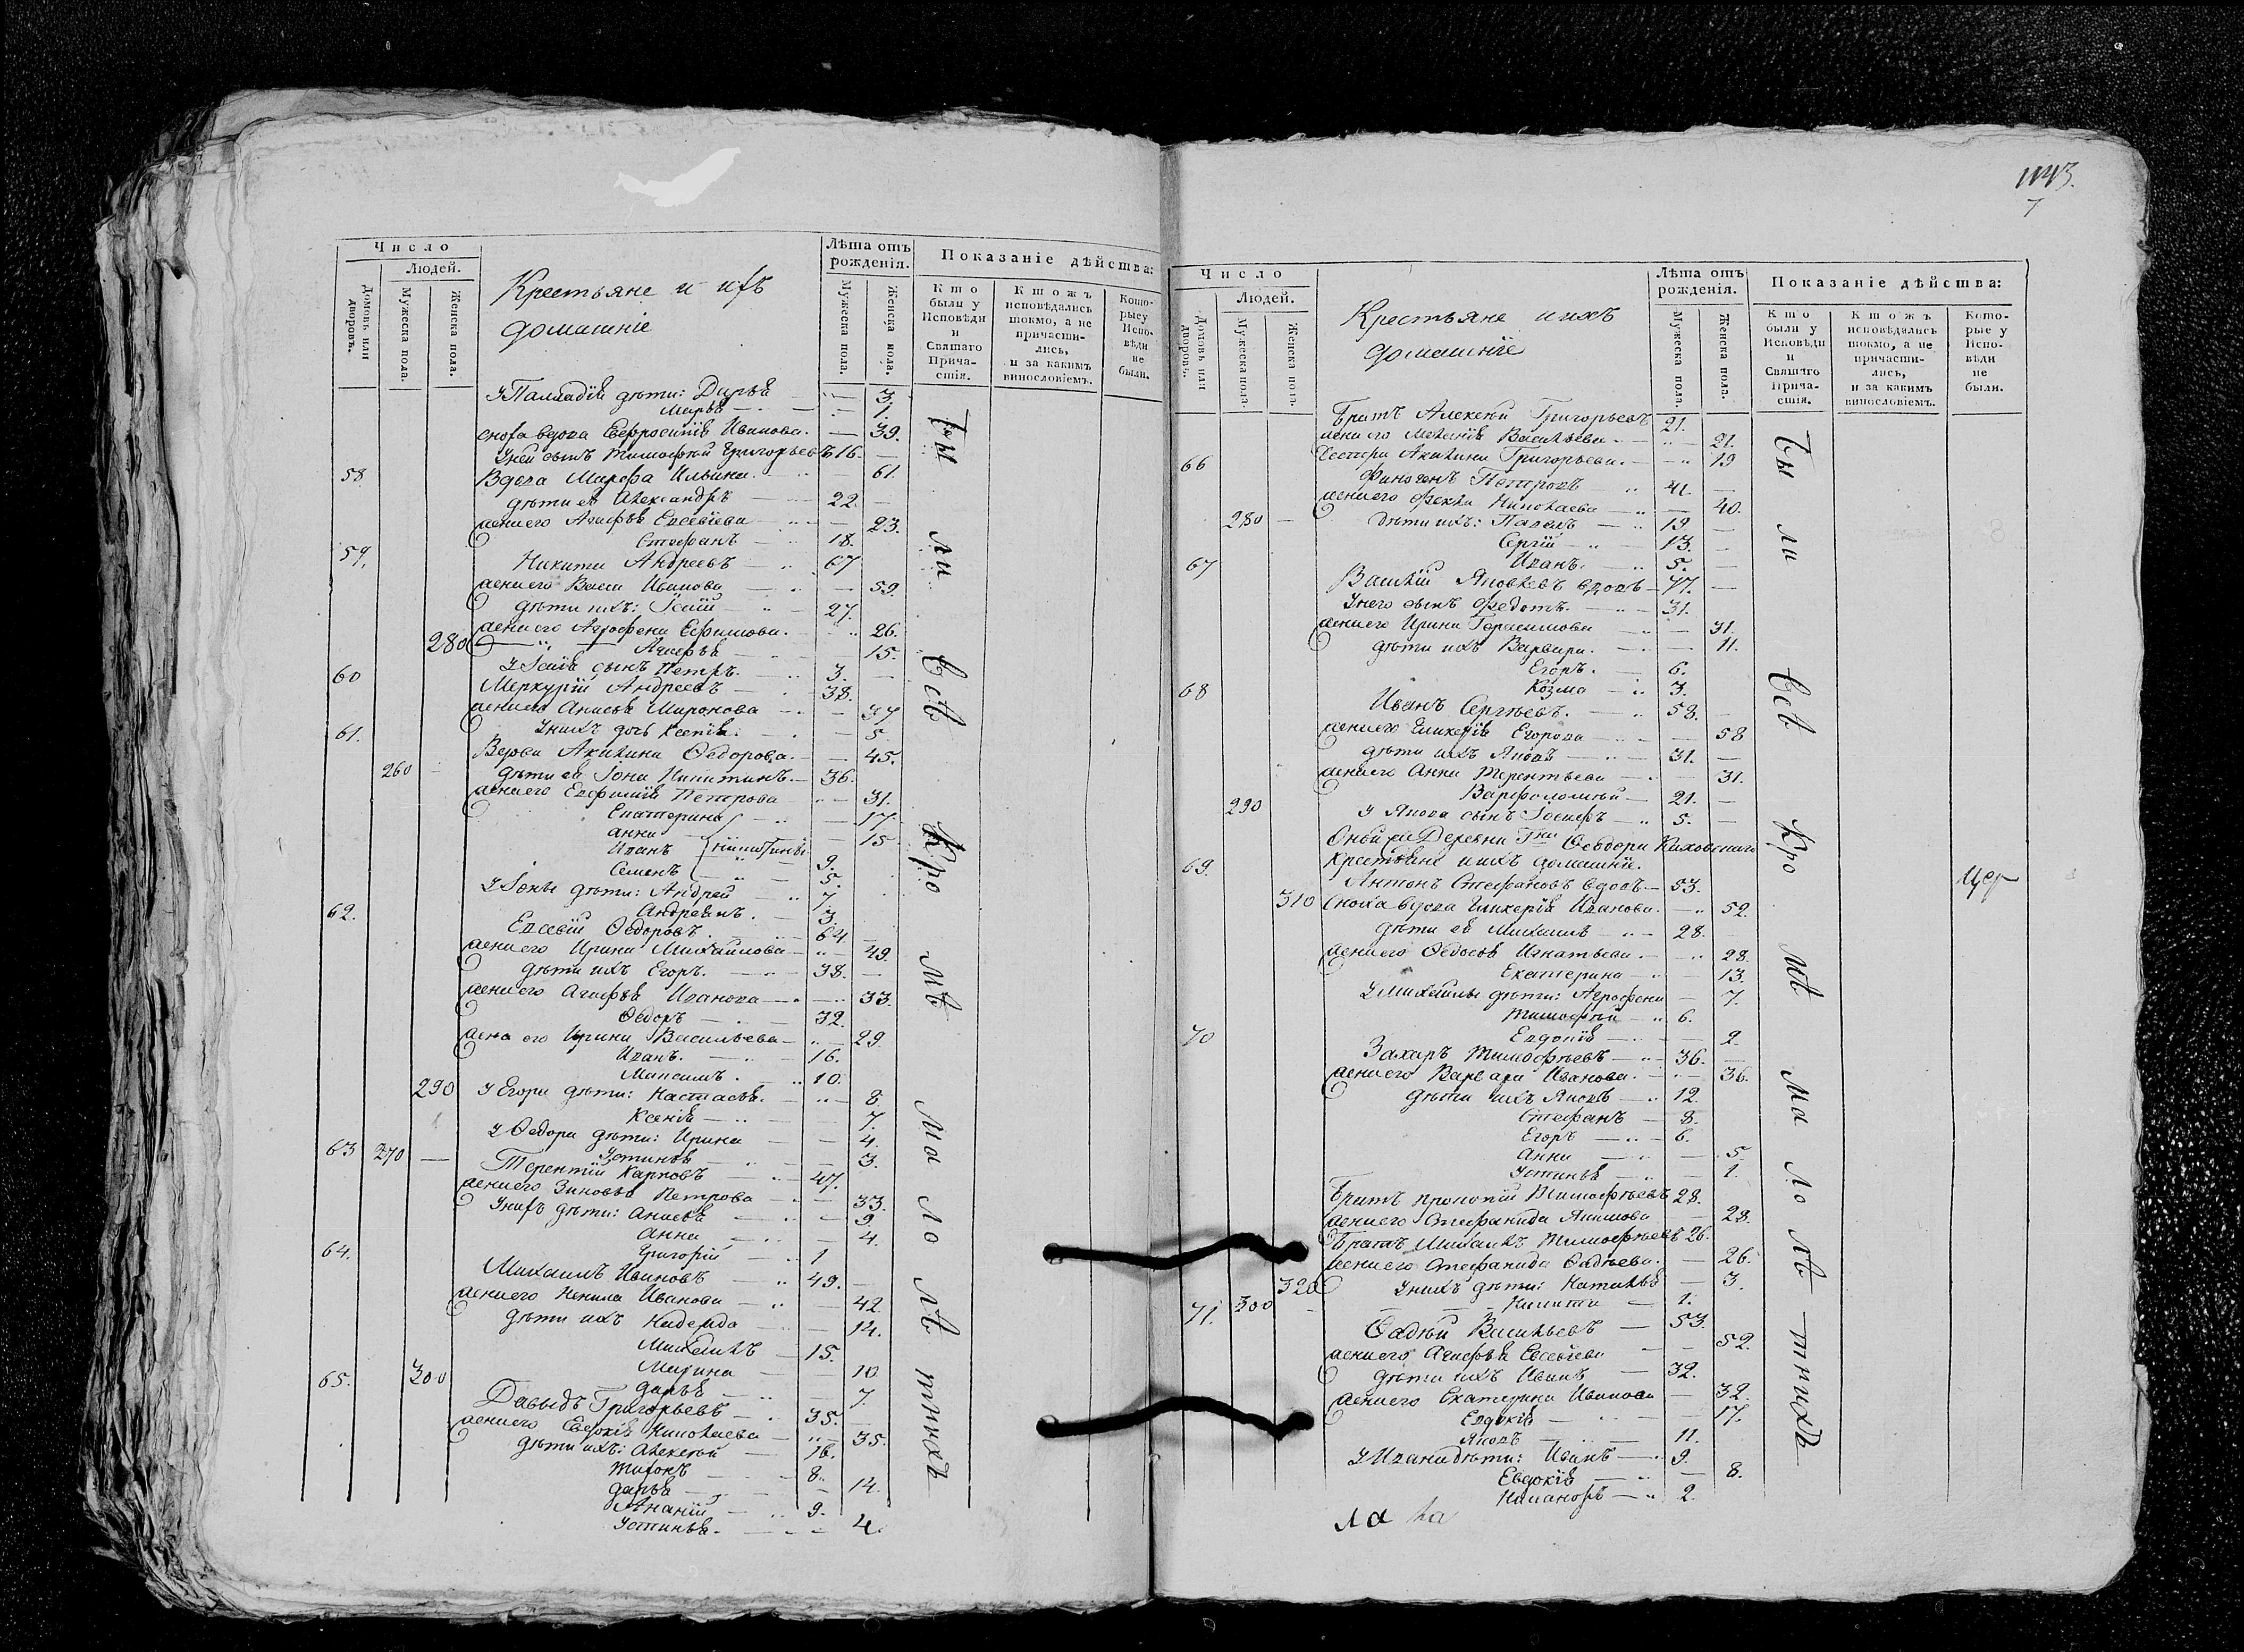 Число
Людей.
Домовъ или дворовъ.
Мужеска пола.
Женска пола.
Крестьяне и ихъ
домашніе
Лѣта отъ рожденія.
Мужеска пола.
Женска пола.
Показаніе дѣйства:
Кто были у Исповѣди и Святаго Причастія.
Кто жъ исповѣдались токмо, а не причастились, и за какимъ винословіемъ.
Которые у Исповѣди не были.
дѣти: Дарья 3.
Марья 1.
сноха вдова Евфросинія Иванова. 39.
У ней сынъ Тимофѣй Григорьевъ 16.
58 Вдова Марфа Ильина. 61.
дѣти ея Александръ 22.
жена его Агафья Евсевіева 23.
Стефанъ 18.
59. Никита Андреевъ 67
жена его Васса Иванова 59.
дѣти ихъ: 27.
жена его Агрофена Ефимова. 26.
280 Агафья 15.
сынъ Петръ. 3.
60 Меркурій Андреевъ 38.
жена его Анисья Миронова 37
У нихъ дочь Ксенія. 5
61. Вдова Акилина Ѳедорова. 45.
260 дѣти ея Іона Никитинъ. 36.
жена его Евфимія Петрова 31.
Екатерина 17.
Анна 15
Иванъ 9.
Семенъ 5.
У Іоны дѣти: Андрей 7
Андреянъ. 3.
62. Евсевій Ѳедоровъ 64
жена его Ирина Михайлова 49.
дѣти ихъ Егоръ. 38.
жена его Агафья Иванова 33.
Ѳедоръ 32.
жена его Ирина Васильева 29
Иванъ. 16.
Максимъ. 10.
290 У Егора дѣти: Настасья. 8.
Ксенія 7.
У Ѳедора дѣти: Ирина 4.
Устинья 3.
63 270 Терентій Карповъ 47.
жена его Зиновья Петрова 33.
У нихъ дѣти: Анисья 9.
Анна 4.
Григорій 1
64. Михаилъ Ивановъ 49.
жена его Ненила Иванова 42.
дѣти ихъ Надежда 14.
Михаилъ 15.
Марина 10
300 Дарья 7.
65. Давыдъ Григорьевъ 35.
жена его Николаева 35.
дѣти ихъ: Алексѣй 16.
Тихонъ 8.
Дарья 14.
Ананій 9.
Устинья. 4.
Бы ли всѣ Кро мѣ ма ло лѣ тнихъ
1143.
7
Число
Людей.
Домовъ или дворовъ.
Мужеска пола.
Женска пола.
Крестьяне и ихъ
домашніе
Лѣта отъ рожденія.
Мужеска пола.
Женска пола.
Показаніе дѣйства:
Кто были у Исповѣди и Святаго Причастія.
Кто жъ исповѣдались токмо, а не причастились, и за какимъ винословіемъ.
Которые у Исповѣди не были.
Братъ Алексѣй Григорьевъ 21.
жена его Меланія Васильева 21.
Сестра Акилина Григорьева. 19
66 Финогенъ Петровъ 41.
жена его Фекла Николаева 40.
280 дѣти ихъ: Павелъ 19
Сергій 13.
Иванъ. 5.
67 Василій Яковлевъ вдовъ 77.
У него сынъ Федотъ. 31.
жена его Ирина Герасимова 31.
дѣти ихъ Варвара. 11.
Егоръ. 6.
Козма 3.
68 Иванъ Сергѣевъ. 58.
жена его Гликерія Егорова 58
дѣти ихъ Яковъ 31.
жена его Анна Терентьева 31.
Варфоломей 21.
290 У Якова сынъ Іосифъ 5.
Оной же Деревни Гна Ѳеодора Каховскаго
крестьяне и ихъ домашніе.
69. Антонъ Стефановъ вдовъ 53. Цер
310 Сноха вдова Гликерія Иванова. 52.
дѣти ея Михаилъ 28.
жена его Ѳедосья Игнатьева. 28.
Екатерина 13.
У Михаилы дѣти: Агрофена 7.
Тимофѣй 6.
Евдокія 2
70 Захаръ Тимофѣевъ 36.
жена его Варвара Иванова. 36.
дѣти ихъ Яковъ 12.
Стефанъ 8.
Егоръ 6.
Анна 5
Устинья 1.
Братъ Прокопій Тимофѣевъ 28.
жена его Стефанида Акимова 28.
Братъ Михаилъ Тимофѣевъ 26.
жена его Стефанида Ѳадѣева. 26.
320 У нихъ дѣти: Наталья 3.
300 Никита 1.
71. Ѳадѣй Васильевъ 53.
жена его Агафья Евсевіева 52.
дѣти ихъ Иванъ 32.
жена его Екатерина Иванова 32.
Евдокія 17.
Яковъ 11.
У Ивана дѣти: Иванъ 9.
Евдокія 8.
Никаноръ 2.
Бы ли всѣ Кро мѣ ма ло лѣ тнихъ